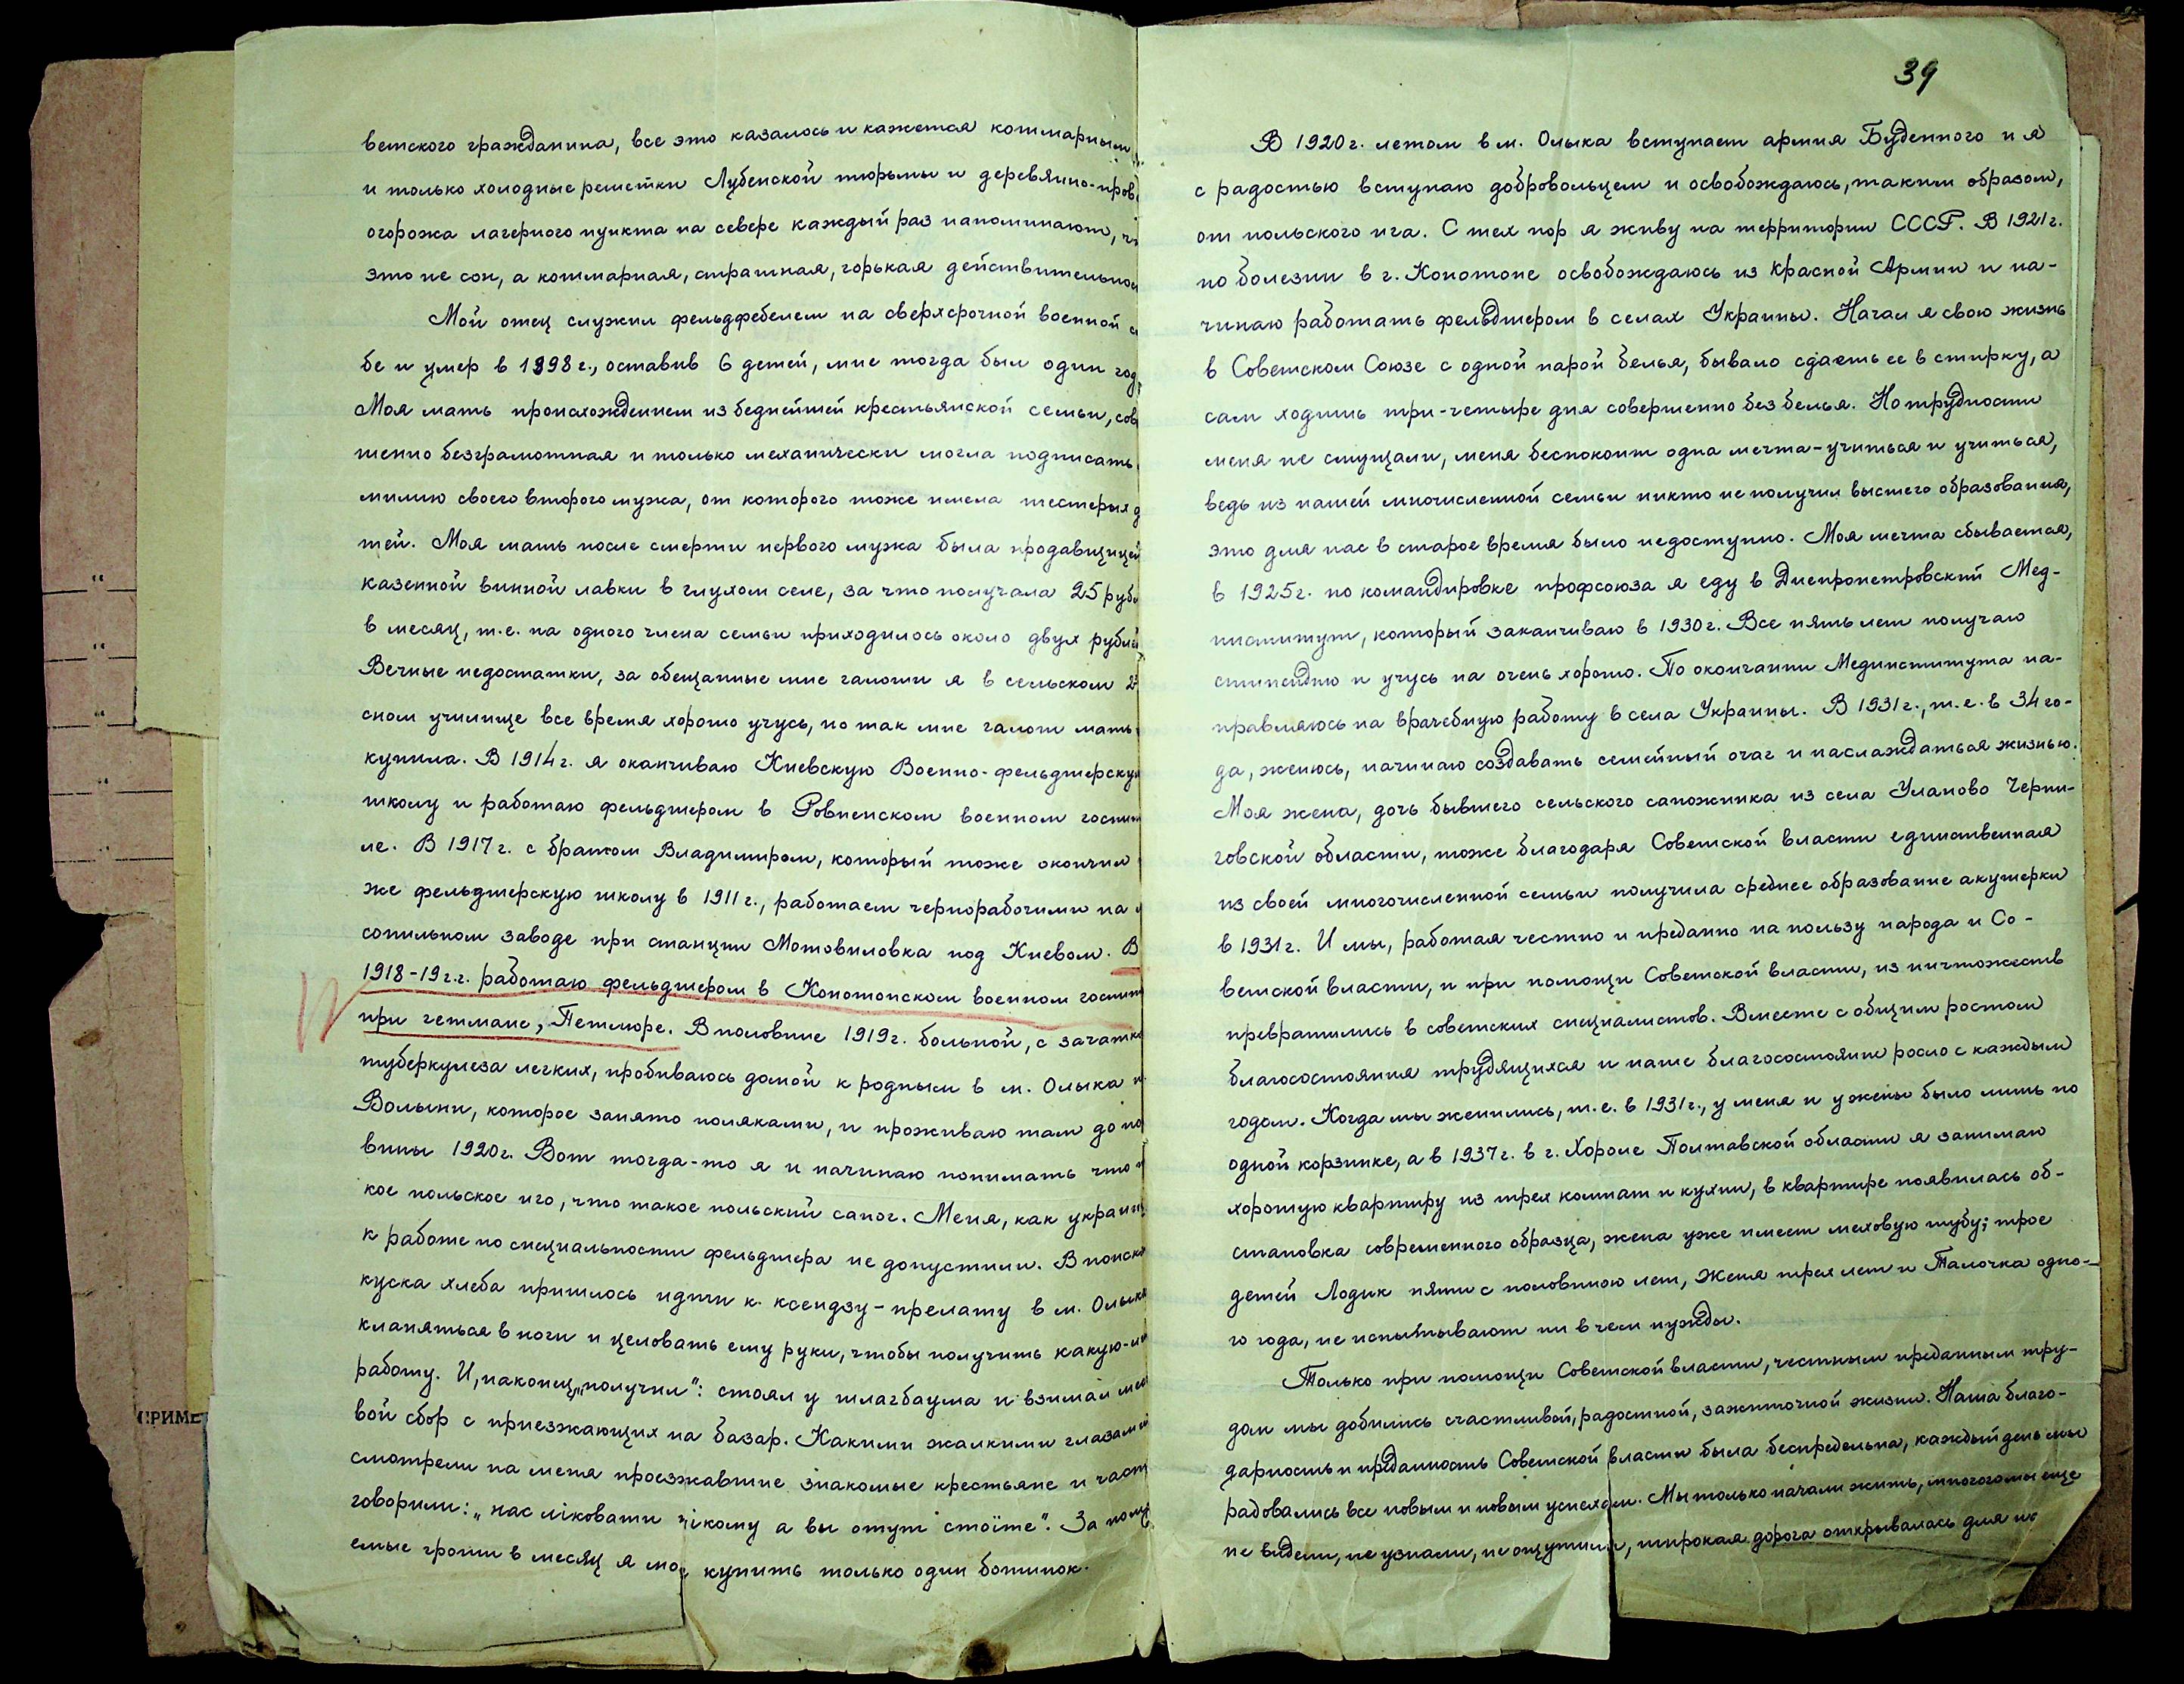 ветского гражданина, все это казалось и кажется кошмарным
и только холодные решетки Лубенской тюрьмы и деревянно-пров
огорожа лагерного пункта на севере каждый раз напоминают, чт
это не сон, а кошмарная, страшная, горькая действительнос
Мой отец служил фельдфебелем на сверхсрочной военной с
бе и умер в 1898 г., оставив 6 детей, мне тогда был один год,
Моя мать происхождением из беднейшей крестьянской семьи, сов
шенно безграмотная и только механически могла подписать
милию своего второго мужа, от которого тоже имела шестерых д
тей. Моя мать после смерти первого мужа была продавщицей
казенной винной лавки в глухом селе, за что получала 25 рубл
в месяц, т.е. на одного члена семьи приходилось около двух рублей
Вечные недостатки, за обещанные мне галоши я в сельском 2х
сном училище все время хорошо учусь, но так мне галош мать
купила. В 1914 г. я оканчиваю Киевскую Военно-фельдшерскую
школу и работаю фельдшером в Ровненском военном госпит
ле. В 1917 г. с братом Владимиром, который тоже окончил
же фельдшерскую школу в 1911 г., работаем чернорабочими на
сопильном заводе при станции Мотовиловка под Киевом. В
1918-19 г.г. работаю фельдшером в Конотопском военном госпит
при гетмане, Петлюре. В половине 1919 г. больной, с зачатк
туберкулеза легких, пробиваюсь домой к родным в м. Олыка н
Волыни, которое занято поляками, и проживаю там до по
вины 1920 г. Вот тогда-то я и начинаю понимать что
кое польское иго, что такое польский сапог. Меня, как украин
к работе по специальности фельдшера не допустили. В поиск
куска хлеба пришлось идти к ксендзу-прелату в м. Олыка
кланяться в ноги и целовать ему руки, чтобы получить какую-ни
работу. И, наконец, „получил": стоял у шлагбаума и взимал мес
вой сбор с приезжающих на базар. Какими жалкими глазами
смотрели на меня проезжавшие знакомые крестьяне и част
говорили: „нас ліковати нікому а вы отут стоїте". За получ
емые гроши в месяц я мог купить только один ботинок.
39
В 1920 г. летом в м. Олыка вступает армия Буденного и я
с радостью вступаю добровольцем и освобождаюсь, таким образом,
от польского ига. С тех пор я живу на территории СССР. В 1921 г.
по болезни в г. Конотопе освобождаюсь из Красной Армии и на-
чинаю работать фельдшером в селах Украины. Начал я свою жизнь
в Советском Союзе с одной парой белья, бывало сдаешь ее в стирку, а
сам ходишь три-четыре дня совершенно без белья. Но трудности
меня не смущали, меня беспокоит одна мечта-учиться и учиться,
ведь из нашей многочисленной семьи никто не получил высшего образования,
это для нас в старое время было недоступно. Моя мечта сбывается,
в 1925 г. по командировке профсоюза я еду в Днепропетровский Мед-
институт, который заканчиваю в 1930 г. Все пять лет получаю
стипендию и учусь на очень хорошо. По окончании Мединститута на-
правляюсь на врачебную работу в села Украины. В 1931 г., т.е. в 34 го-
да, женюсь, начинаю создавать семейный очаг и наслаждаться жизнью.
Моя жена, дочь бывшего сельского сапожника из села Уланово Черни-
говской области, тоже благодаря Советской власти единственная
из своей многочисленной семьи получила среднее образование акушерки
в 1931 г. И мы, работая честно и преданно на пользу народа и Со-
ветской власти, и при помощи Советской власти, из ничтожеств
превратились в советских специалистов. Вместе с общим ростом
благосостояния трудящихся и наше благосостояние росло с каждым
годом. Когда мы женились, т.е. в 1931 г., у меня и у жены было лишь по
одной корзинке, а в 1937 г. в г. Хороле Полтавской области я занимаю
хорошую квартиру из трех комнат и кухни, в квартире появилась об-
становка современного образца, жена уже имеет меховую шубу; трое
детей Лодик пяти с половиною лет, Женя трех лет и Талочка одно-
го года, не испытывают ни в чем нужды.
Только при помощи Советской власти, честным преданным тру-
дом мы добились счастливой, радостной, зажиточной жизни. Наша благо-
дарность и преданность Советской власти была беспредельна, каждый день мы
радовались все новым и новым успехам. Мы только начали жить, многого мы еще
не видели, не узнали, не ощутили, широкая дорога открывалась для нас
ПРИМЕ